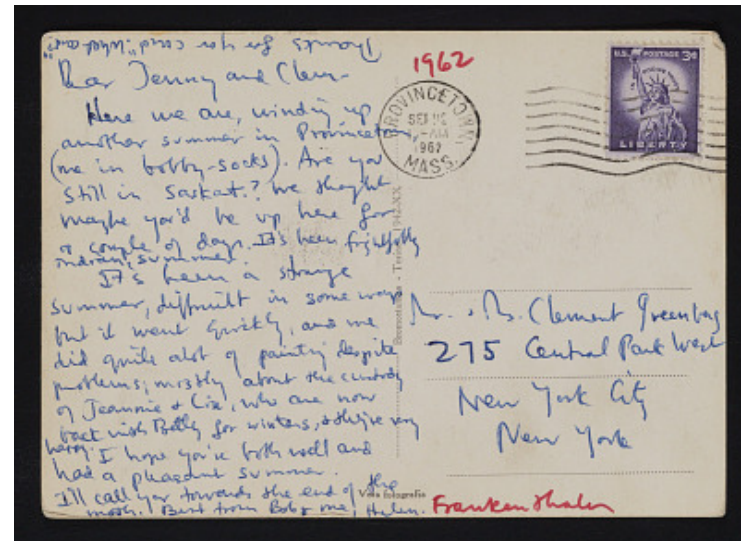 Thanks for your card. What
Dear Jenny and Clem -
Here we are, winding up
another summer in Provincetown,
(me in bobby-socks). Are you
still in Saskat.? We thought
maybe you'd be up here for
a couple of days. It's been frightfully
indian, summer.
It's been a strange
summer, difficult in some ways
but it went quickly, and we
did quite alot of painting despite
problems; mostly about the custody
of Jeannie + Lise, who are now
back with Betty for winters, & they're very
happy. I hope you're both well and
had a pleasant summer.
I'll call you towards the end of the
month. Best from Bob & me, Helen.
1962
PROVINCETOWN,
SEP
AM
1962
MASS.
U.S. POSTAGE 3¢
IN GOD WE TRUST
LIBERTY
Mr. + Mrs. Clement Greenberg
275 Central Park West
New York City
New York
Vera fotografia
Frankenthaler